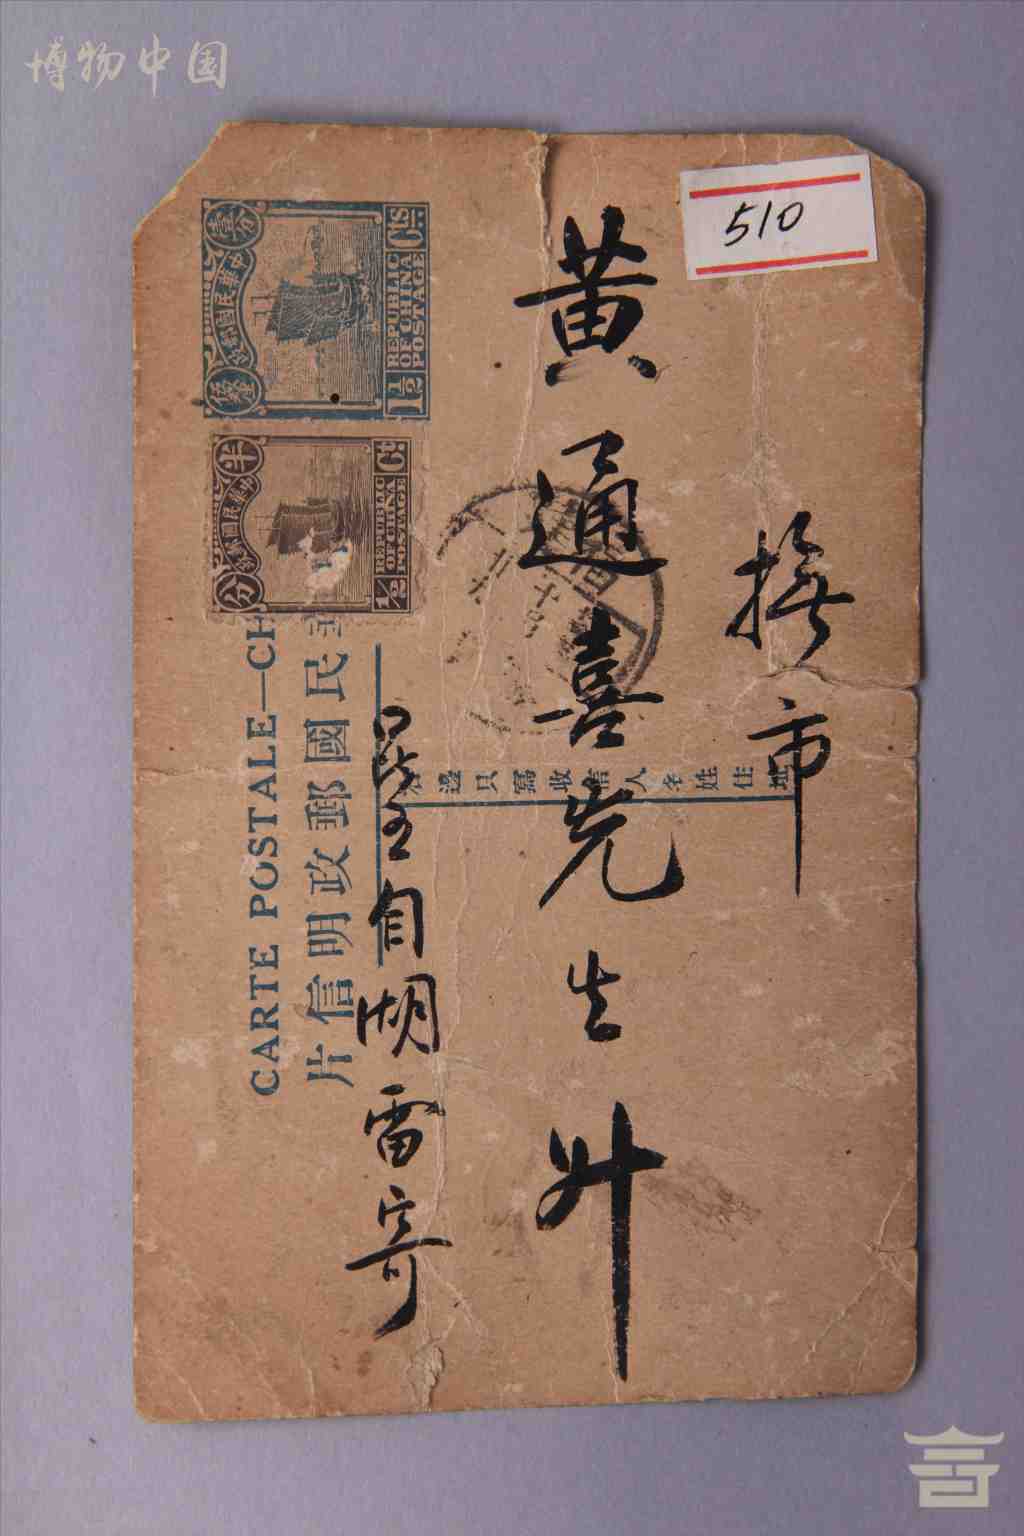 博物中国
510
撫市
黃通喜先生升
昆玉自湖雷寄
CARTE POSTALE—CH
民國郵政明信片
邊只寫收信人名姓住址
壹分
伍釐
中華民國郵政
REPUBLIC
OF CHINA
POSTAGE
1½ Cts
半分
中華民國郵政
REPUBLIC
OF CHINA
POSTAGE
1/2 Ct